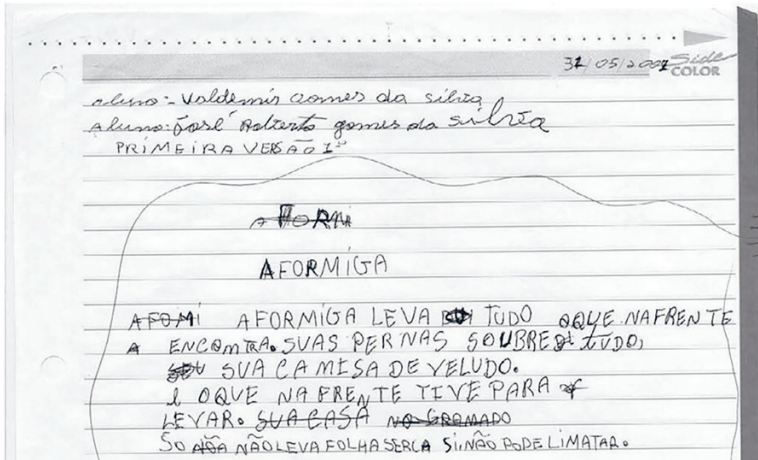 31/05/2001 Side
COLOR
aluno:- Valdemir Gomes da silvia
Aluno: José Roberto gomes da silvia
PRIMEIRA VERSÃO 1º
A FORMI
AFORMIGA
AFOMI AFORMIGA LEVA TUDO OQUE NAFRENTE
A ENCOMTRA. SUAS PERNAS SOUBRE TUDO,
SUA CAMISA DE VELUDO.
l OQUE NA FRENTE TIVE PARA
LEVAR. SUA CASA NO GRAMADO
SO NÃO LEVA FOLHA SERCA SINÃO PODE LIMATAR.